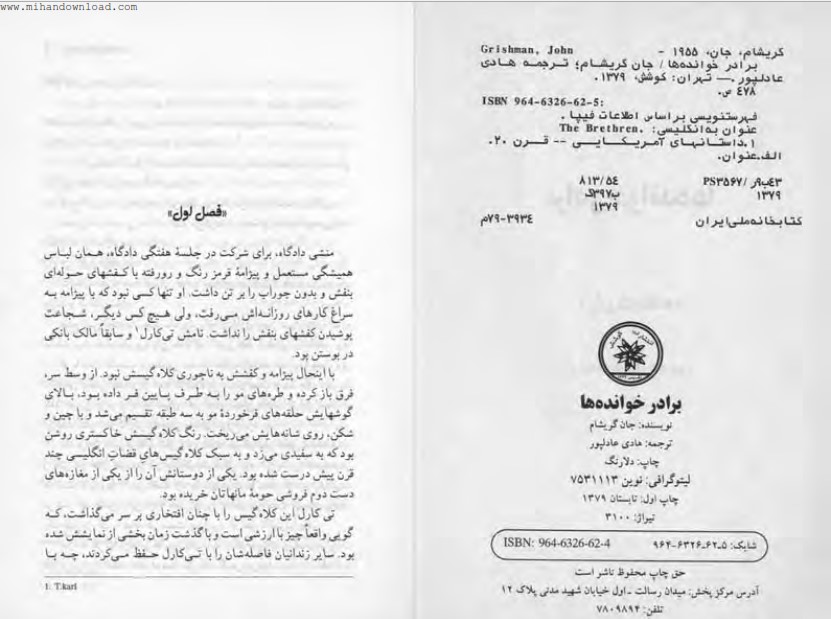 www.mihandownload.com
Grishman, John گریشام، جان، ۱۹۵۵ -
برادر خوانده‌ها / جان گریشام؛ ترجمه هادی
عادلپور .— تهران: کوشش، ۱۳۷۹.
۴۷۸ ص.
ISBN 964-6326-62-5:
فهرستنویسی براساس اطلاعات فیپا .
عنوان به‌انگلیسی: The Brethren.
۱.داستانهای آمریکایی -- قرن ۲۰.
الف.عنوان.
۸۱۳/۵۴ PS۳۵۶۷/ر۹ب۴۳
ب۳۹۷گ ۱۳۷۹
۱۳۷۹
کتابخانه‌ملی‌ایران م۷۹-۳۹۳۴
برادر خوانده‌ها
نویسنده: جان گریشام
ترجمه: هادی عادلپور
چاپ: دلارنگ
لیتوگرافی: نوین ۷۵۳۱۱۱۳
چاپ اول: تابستان ۱۳۷۹
تیراژ: ۳۱۰۰
شابک: ۵-۶۲-۶۳۲۶-۹۶۴ ISBN: 964-6326-62-4
حق چاپ محفوظ ناشر است
آدرس مرکز پخش: میدان رسالت - اول خیابان شهید مدنی پلاک ۱۲
تلفن: ۷۸۰۹۸۹۴
«فصل اول»
منشی دادگاه، برای شرکت در جلسهٔ هفتگی دادگاه، همان لباس
همیشگی مستعمل و پیژامهٔ قرمز رنگ و رورفته با کفشهای حوله‌ای
بنفش و بدون جوراب را بر تن داشت. او تنها کسی نبود که با پیژامه به
سراغ کارهای روزانه‌اش می‌رفت، ولی هیچ کس دیگر، شجاعت
پوشیدن کفشهای بنفش را نداشت. نامش تی‌کارل۱ و سابقاً مالک بانکی
در بوستن بود.
با اینحال پیژامه و کفشش به ناجوری کلاه گیسش نبود. از وسط سر،
فرق باز کرده و طره‌های مو را به طرف پایین فر داده بود، بالای
گوشهایش حلقه‌های فرخوردهٔ مو به سه طبقه تقسیم می‌شد و با چین و
شکن، روی شانه‌هایش می‌ریخت. رنگ کلاه گیسش خاکستری روشن
بود که به سفیدی می‌زد و به سبک کلاه گیس‌های قضات انگلیسی چند
قرن پیش درست شده بود. یکی از دوستانش آن را از یکی از مغازه‌های
دست دوم فروشی حومهٔ مانهاتان خریده بود.
تی کارل این کلاه گیس را با چنان افتخاری بر سر می‌گذاشت، که
گویی واقعاً چیز با ارزشی است و با گذشت زمان بخشی از نمایشش شده
بود. سایر زندانیان فاصله‌شان را با تی‌کارل حفظ می‌کردند، چه با
1. T.karl